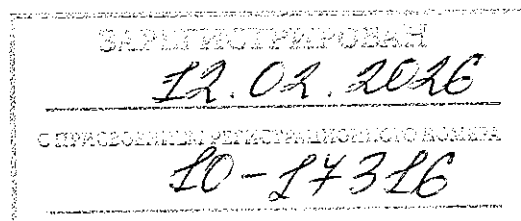 ЗАРЕГИСТРИРОВАН
12.02.2026
С ПРИСВОЕНИЕМ РЕГИСТРАЦИОННОГО НОМЕРА
10-17316